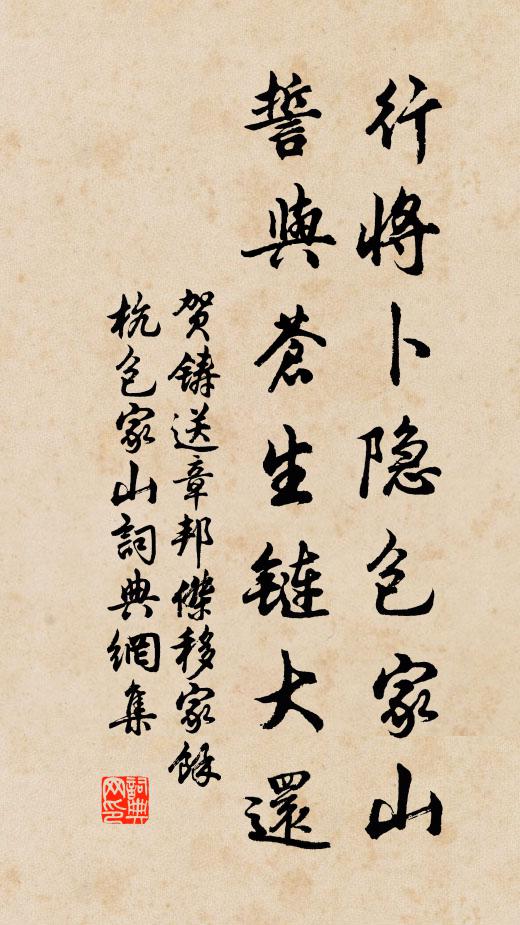 行將卜隐包家山
誓與蒼生鏈大還
贺鑄送章邦傑移家餘
杭包家山詞典網集
詞典
网印